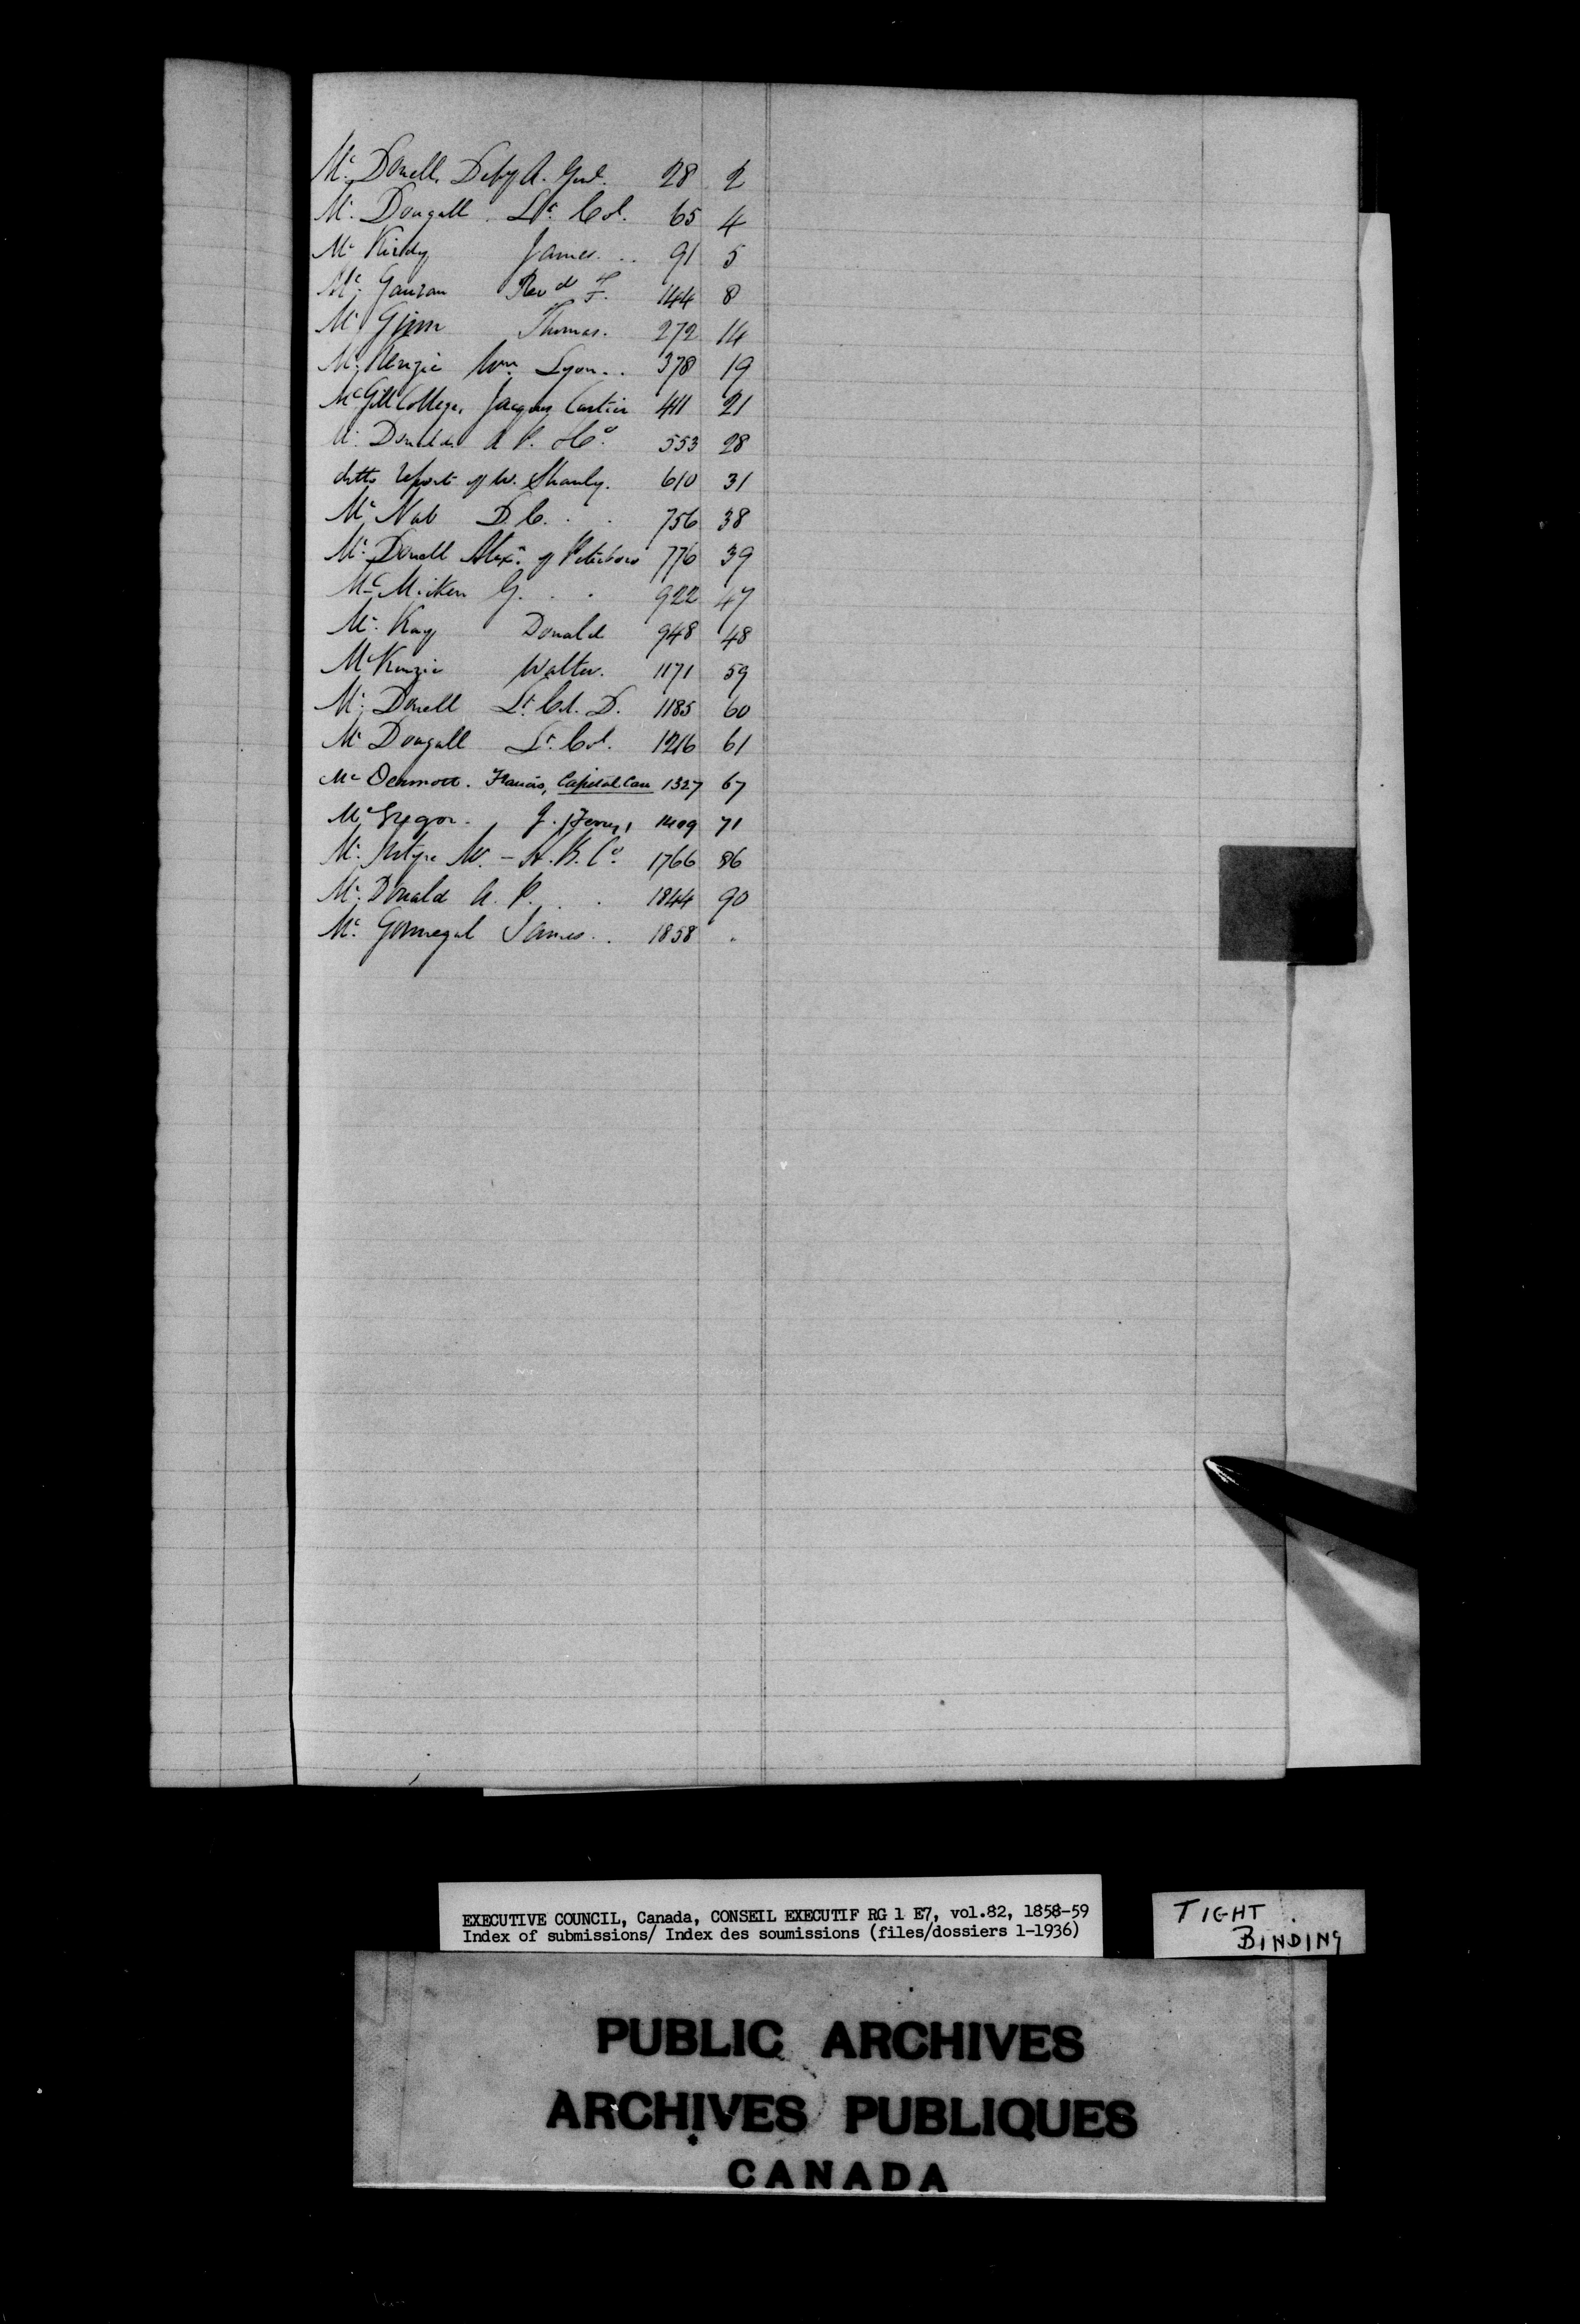 Mc Donell, Deby A. Genl. 28 2
Mc Dougall Lt. Col. 65 4
Mc Kirdy James. .. 91 5
Mc Gauran Revd 144 8
Mc Ginn Thomas. 272 14
Mc Kenzie Wm. Lyon. . 378 19
McGill College, Jacques Cartier 411 21
Mc Donald A P. &Co. 553 28
ditto report of W. Shanly. 610 31
Mc Nab D. C. . . 756 38
Mc Donell Alexr. of Peterboro 776 39
Mc Micken G. . . 922 47
Mc Kay Donald 948 48
McKenzie Walter. 1171 59
Mc Donell Lt. Col. D. 1185 60
Mc Dougall Lt. Col. 1216 61
Mc Dermott. Francis, Capital Case 1327 67
McGregor. J. (Ferry) 1409 71
Mc Intyre W. - H. B. Co. 1766 86
Mc Donald A. P. . . 1844 90
Mc Gonnegal James. . 1858 "
EXECUTIVE COUNCIL, Canada, CONSEIL EXECUTIF RG 1 E7, vol.82, 1858-59
Index of submissions/ Index des soumissions (files/dossiers 1-1936)
TIGHT
BINDING
PUBLIC ARCHIVES
ARCHIVES PUBLIQUES
CANADA